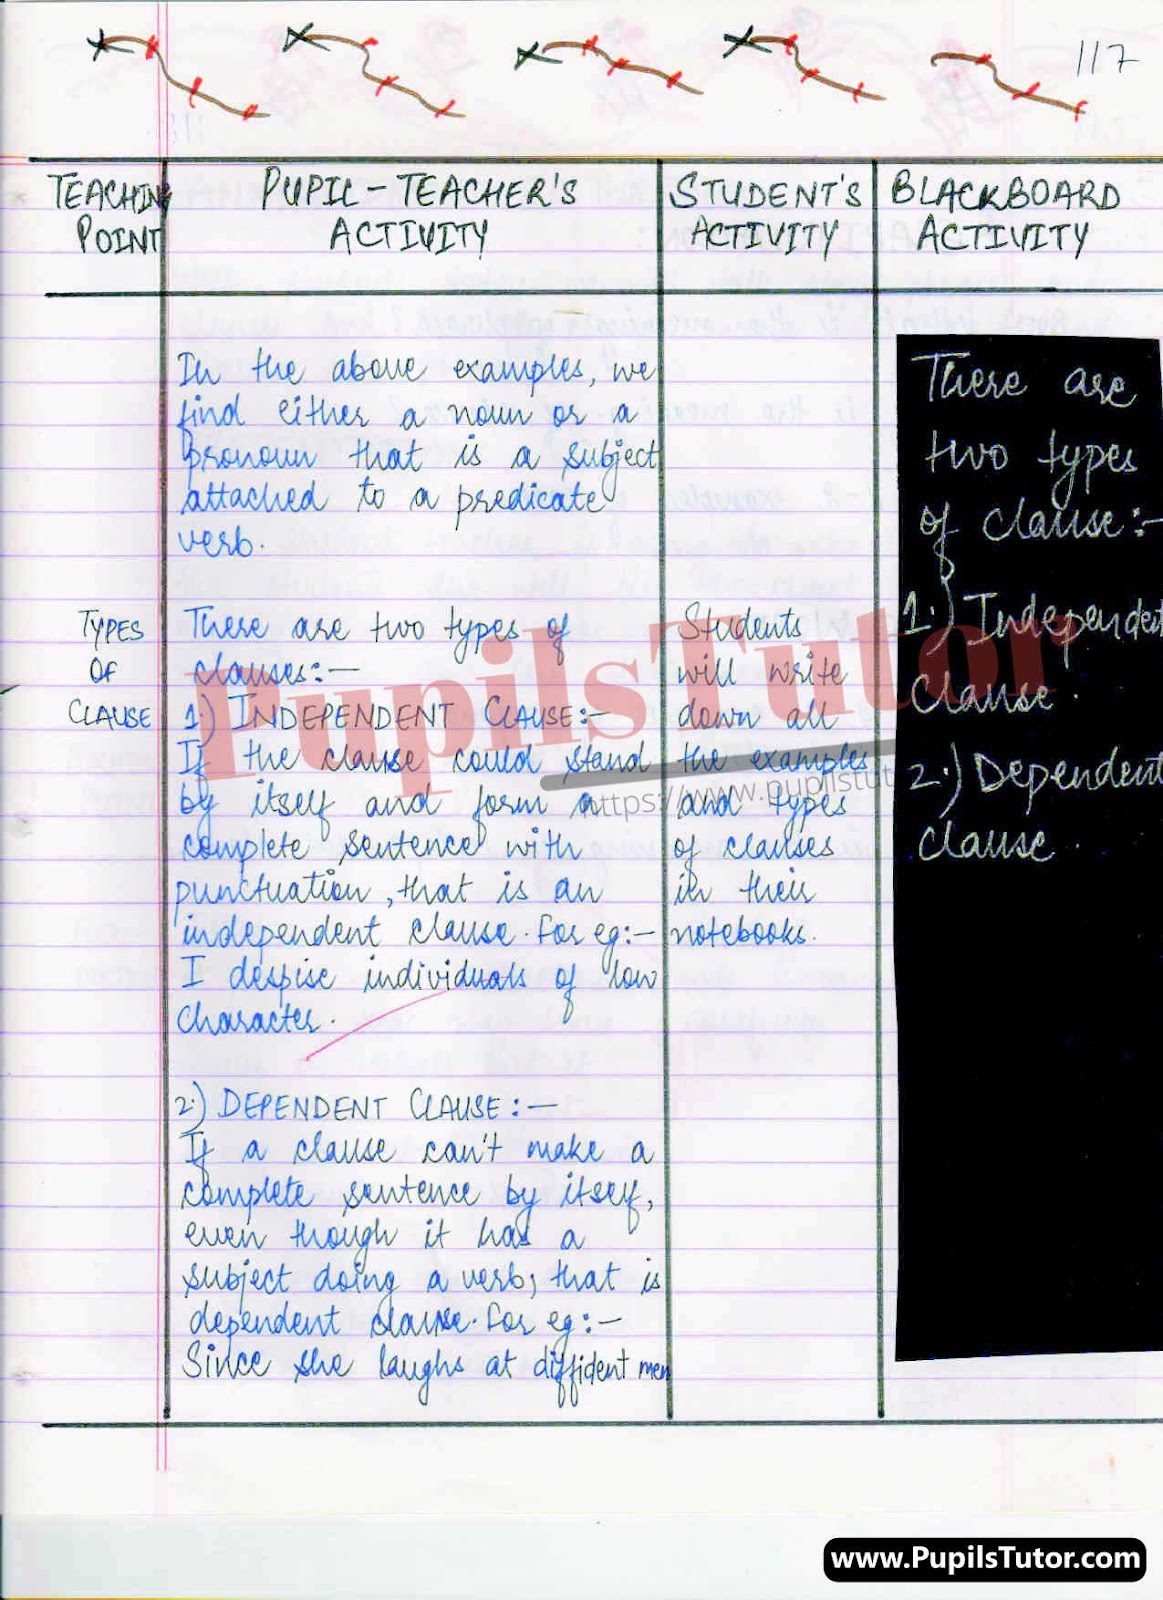 117
TEACHING
POINT
PUPIL-TEACHER'S
ACTIVITY
STUDENT'S
ACTIVITY
BLACKBOARD
ACTIVITY
In the above examples, we
find either a noun or a
pronoun that is a subject
attached to a predicate
verb.
TYPES
OF
CLAUSE
There are two types of
clauses:-
1.) INDEPENDENT CLAUSE:-
If the clause could stand
by itself and form a
complete sentence with
punctuation, that is an
independent clause. For eg:-
I despise individuals of low
character.
2.) DEPENDENT CLAUSE:-
If a clause can't make a
complete sentence by itself,
even though it has a
subject doing a verb; that is
dependent clause. For eg:-
Since she laughs at diffident men
Students
will write
down all
the examples
and types
of clauses
in their
notebooks.
There are
two types
of clause:-
1.) Independent
clause.
2.) Dependent
clause.
PupilsTutor
https://www.pupilstut
www.PupilsTutor.com